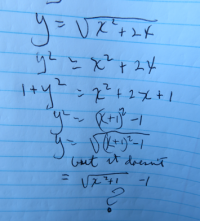 y = √(x² + 2x)
y² = x² + 2x
1 + y² = x² + 2x + 1
y² = (x+1)² - 1
y = √((x+1)² - 1)
but it doesn't
= √(x²+1) - 1
?